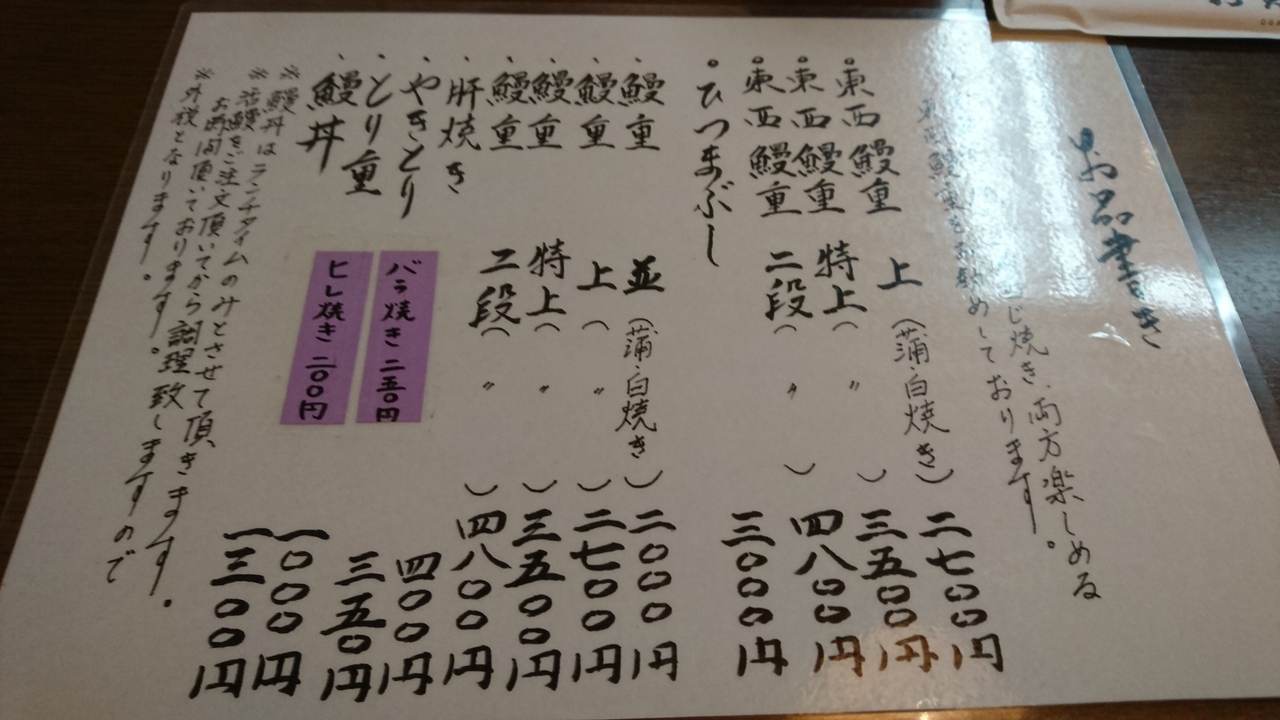 お品書き
じ焼き、両方楽しめる
東西鰻重をお勧めしております。
・東西鰻重 上(蒲・白焼き) 二七00円
・東西鰻重 特上( 〃 ) 三五00円
・東西鰻重 二段( 〃 ) 四八00円
・ひつまぶし 三000円
・鰻重 並(蒲・白焼き) 二000円
・鰻重 上( 〃 ) 二七00円
・鰻重 特上( 〃 ) 三五00円
・鰻重 二段( 〃 ) 四八00円
・肝焼き 四00円
・やきとり 三五0円
・とり重 一000円
・鰻丼 一三00円
バラ焼き 二五0円
ヒレ焼き 二00円
※鰻丼はランチタイムのみとさせて頂きます。
※活鰻をご注文頂いてから調理致しますので
お時間頂いております。
※外税となります。